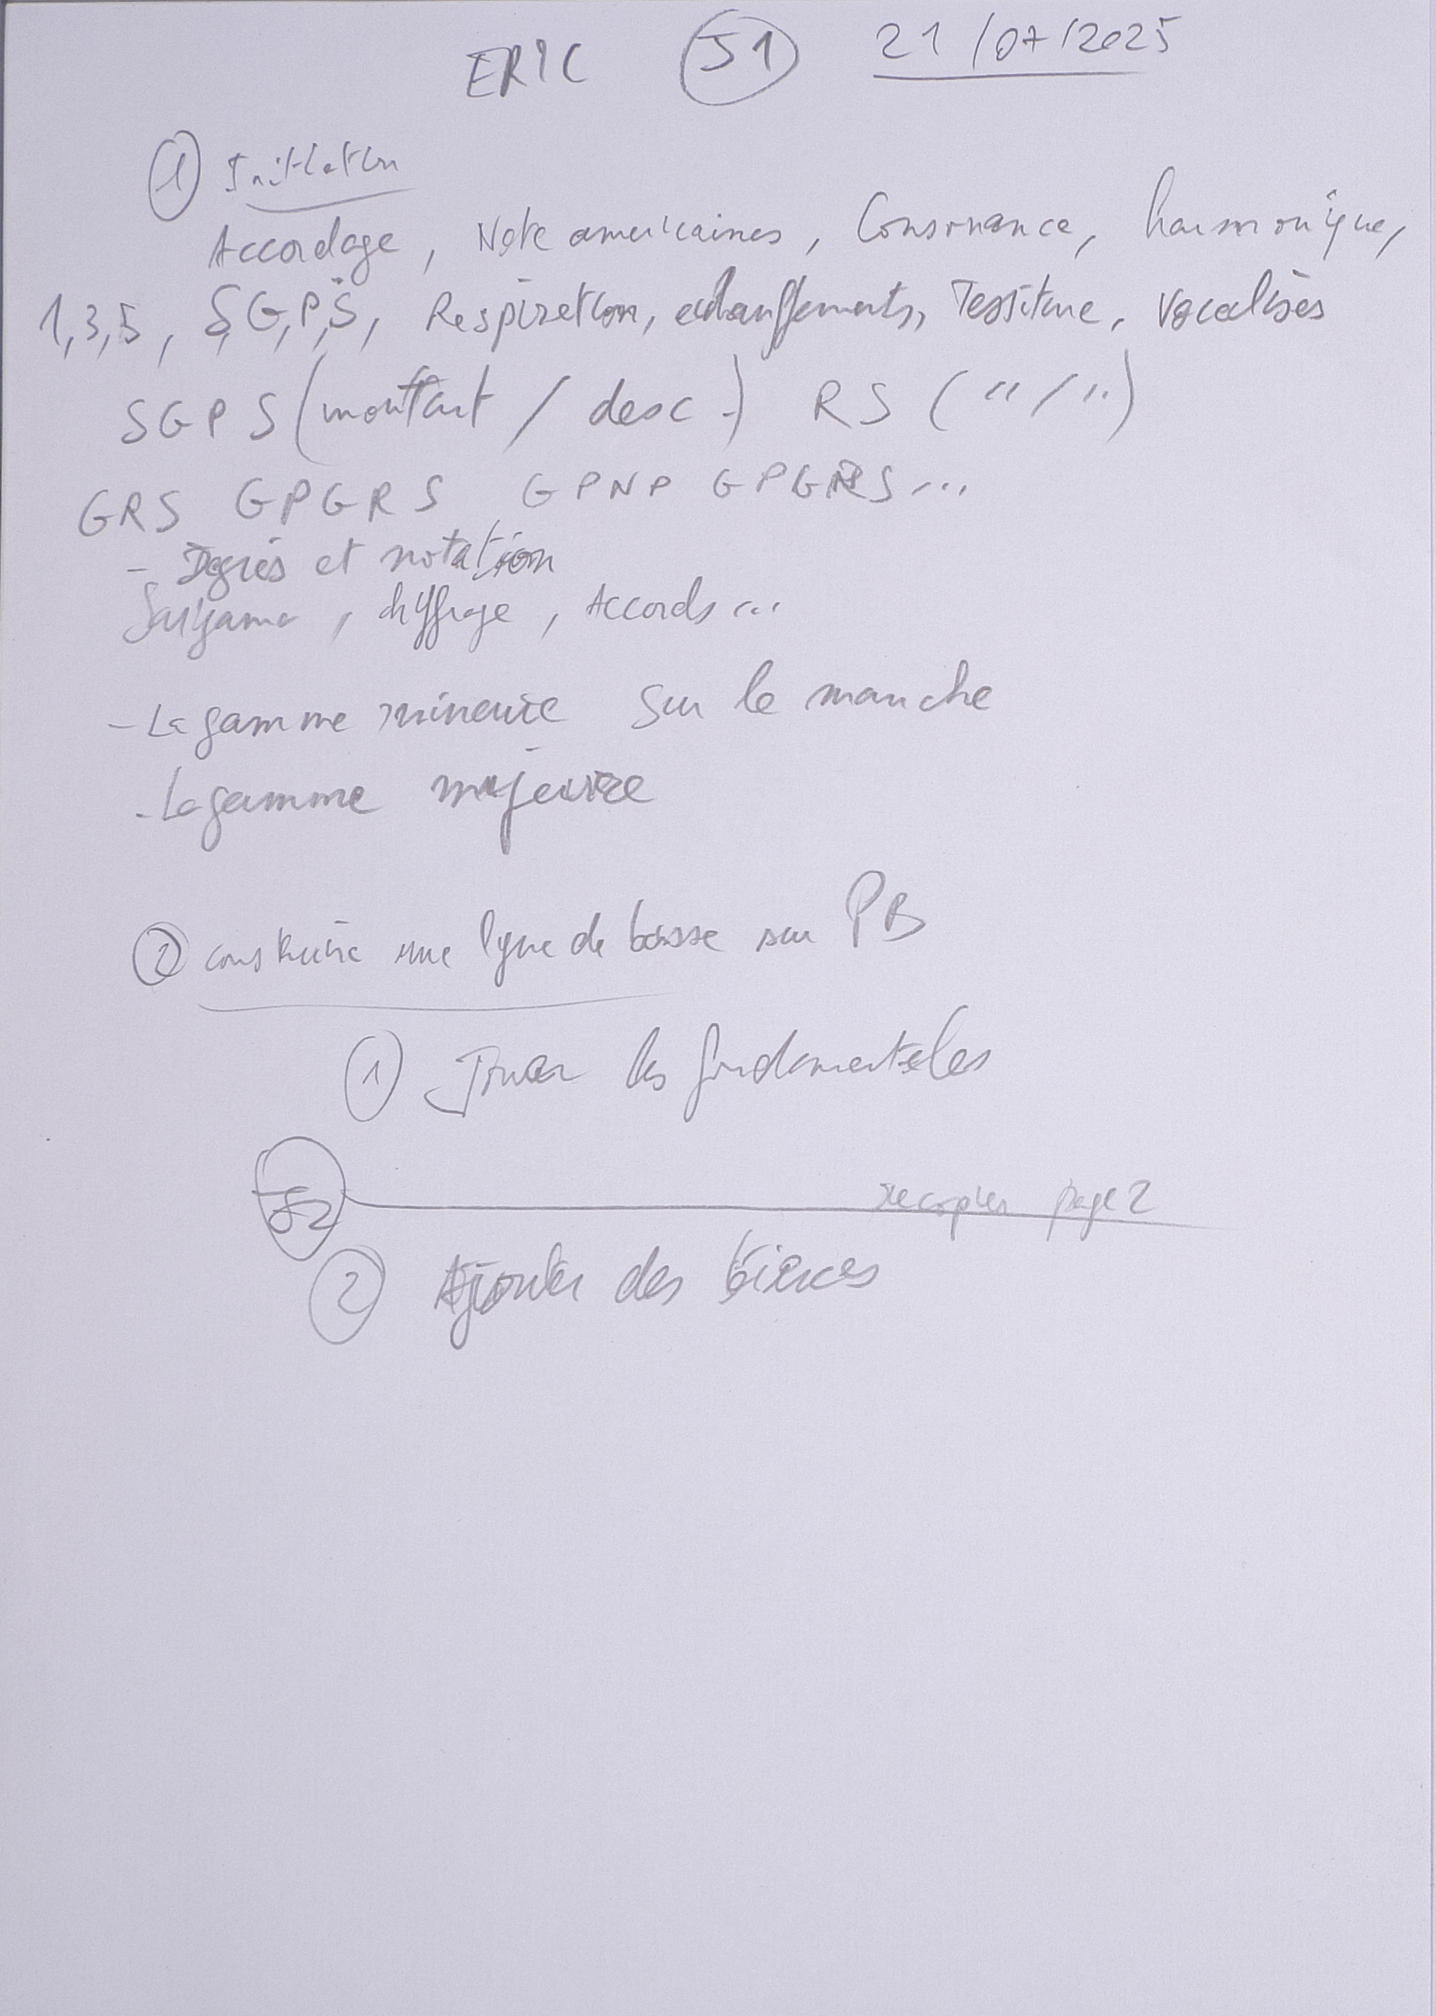 ERIC J1 21/07/2025
① Initiation
Accordage, Note americaines, Consonance, harmonique,
1,3,5, S,G,P,Ṡ, Respiration, echauffements, Tessiture, Vocalises
SGPS (montant / desc.) RS ("/")
GRS GPGRS GPNP GPGRS...
- Degrés et notation
Sargama, chiffrage, Accords...
- La gamme mineure sur le manche
- La gamme majeure
② construire une ligne de basse sur PB
① Jouer les fondamentales
J2 recopier page 2
② Ajouter des tierces